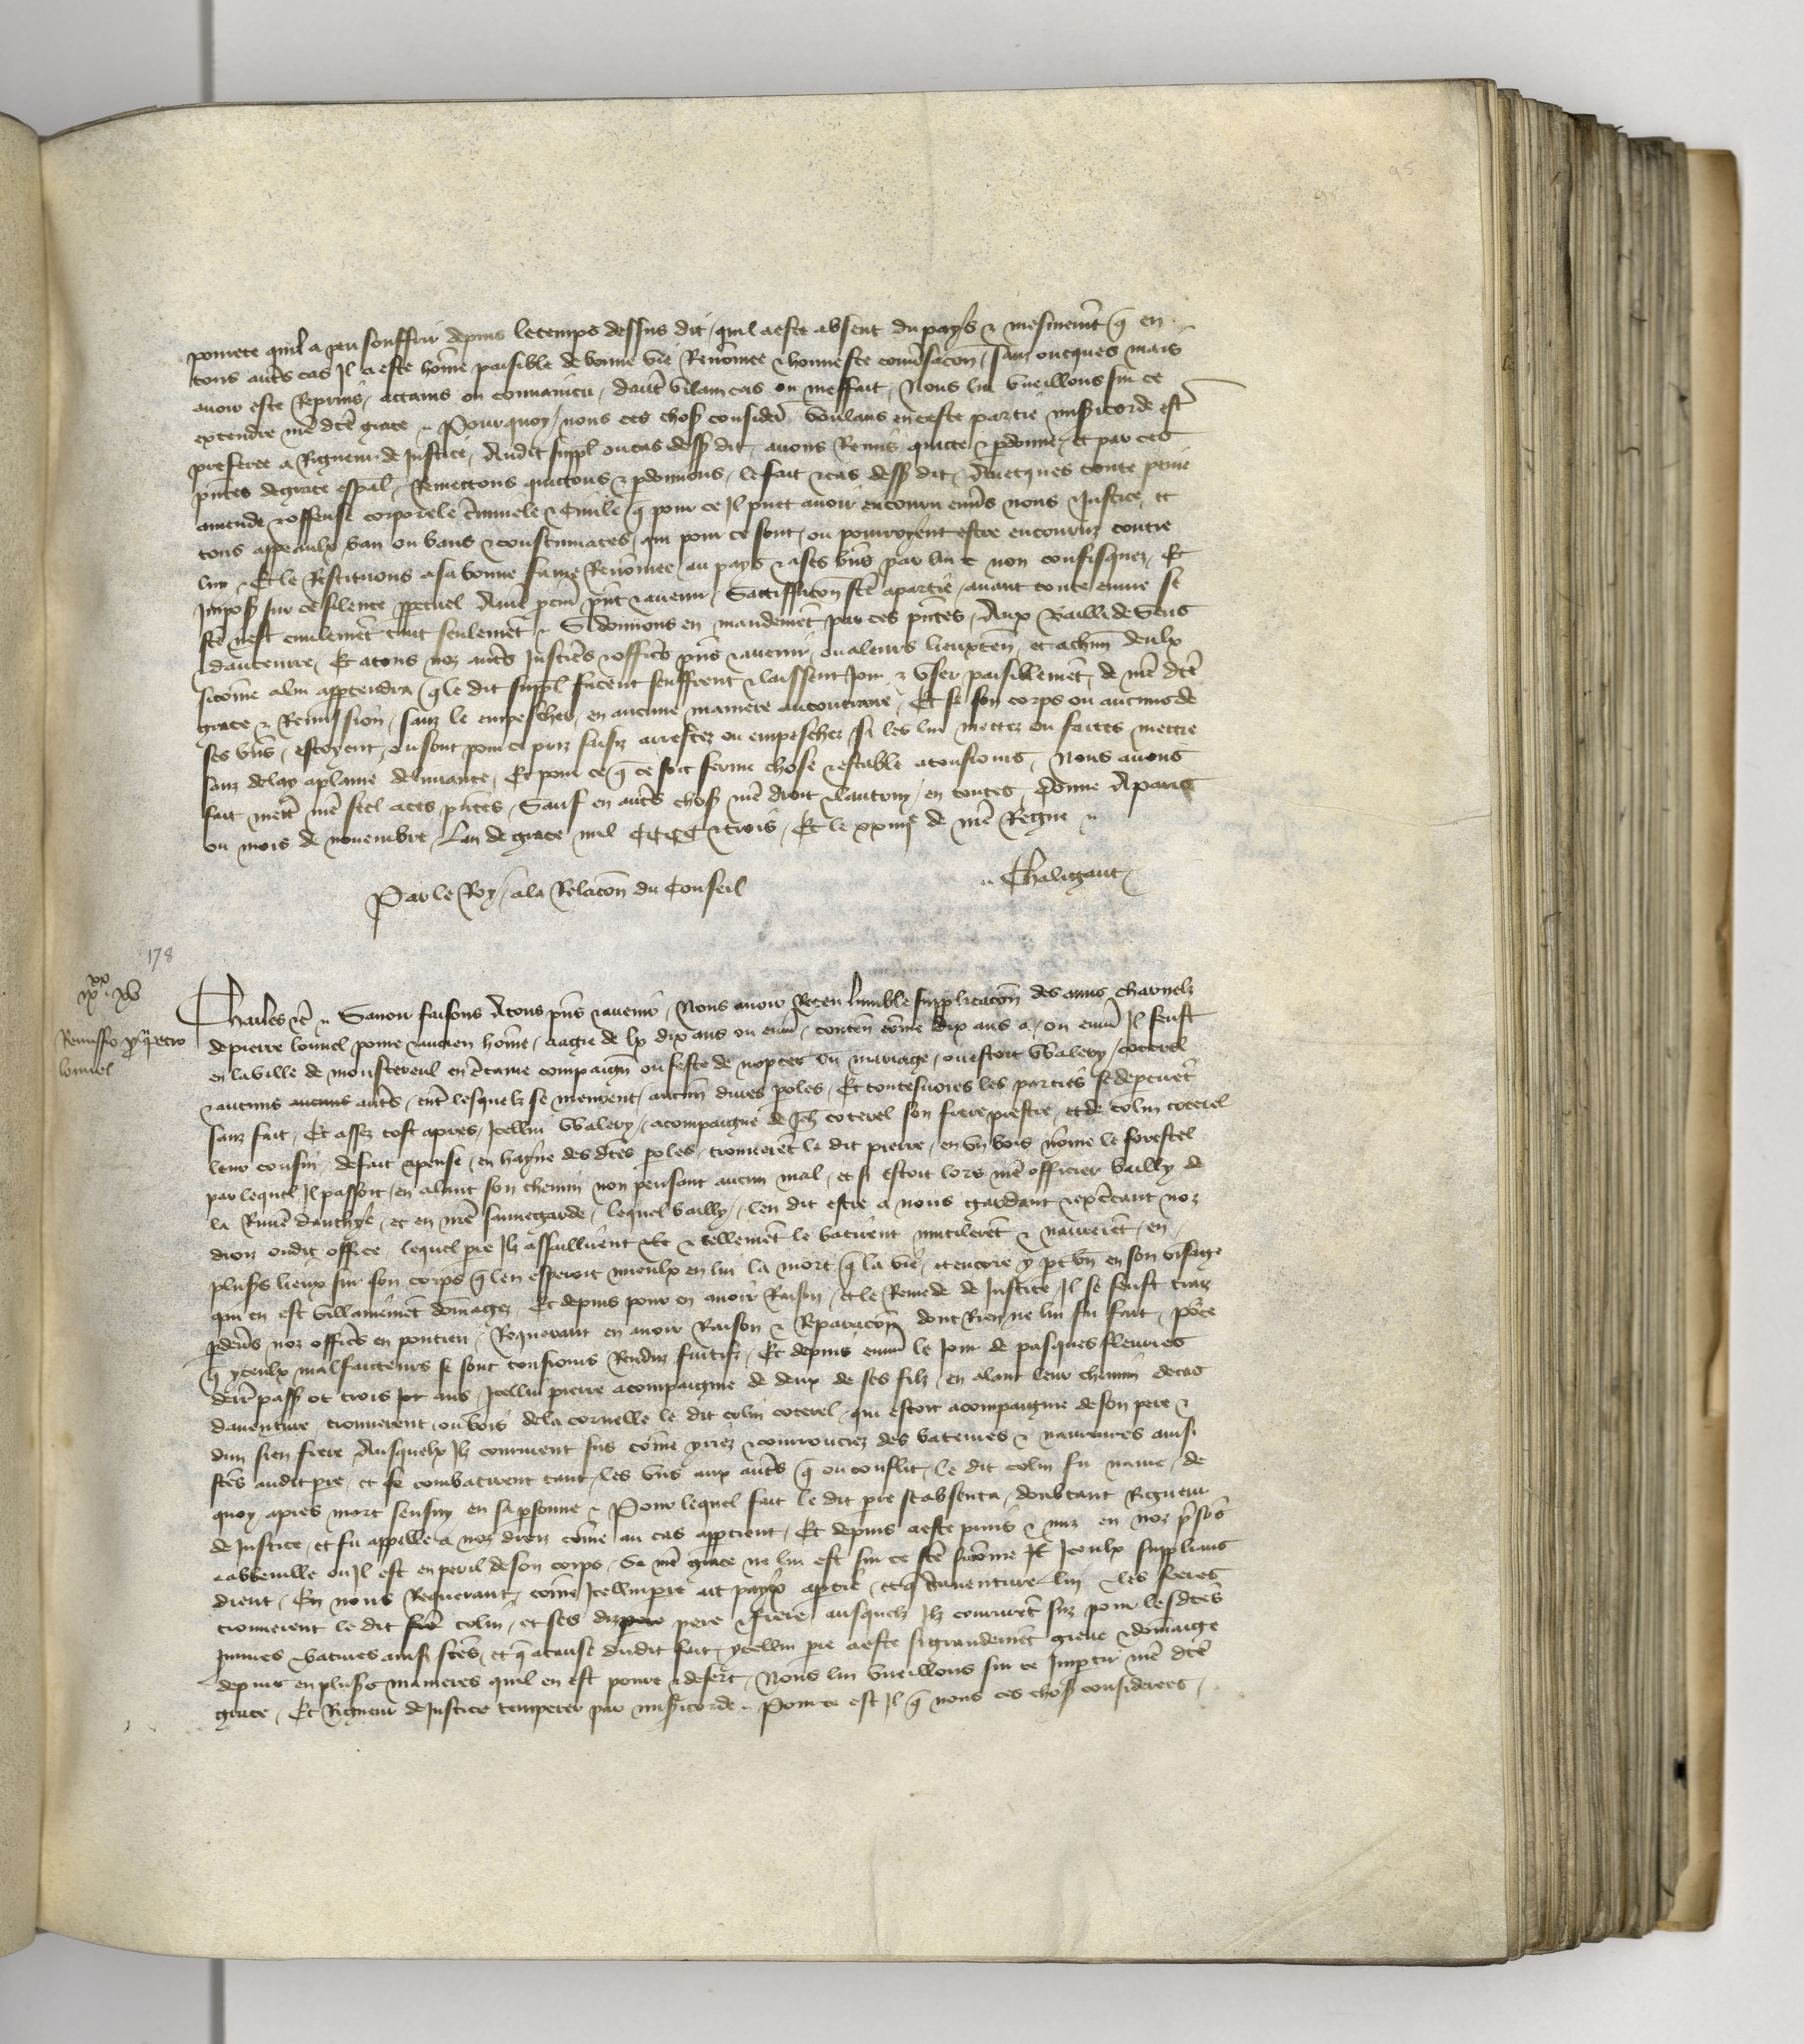 95
povrete quil a peu souffrir depuis le temps dessus dit quil a este absent du pays & mesmemt q en
tous autˢ cas Il a este home paisible de bonne vie Renomee & honneste conversacon sanz oncques mais
avoir este Reprins attains ou convaincu dautˢ villain cas ou meffait Nous lui vueillons sur ce
extendre nre dcte grace Pourquoy nous ces choses consider voulans en ceste partie misericorde estr
preferee a Rigueur de Justice Audit suppl ou cas dess dit avons Remis quitte & pdonne et par ces
pntes de grace espal Remettons quittons & pdonnons le fait & cas dess dit Avecques toute peine
amende & offense corporele criminele & civile q pour ce Il puet avoir encouru envs nous & Justice et
tous appeaulx ban ou bans & coustumaces qui pour ce sont ou pourroyent estre encouruz contre
luy Et le Restituons a sa bonne fame Renomee au pays & a ses bns par lui non confisquez Et
Impos sur ce silence ppetuel A nre pcur pnt & avenir Satisffacon fte a partie avant toute euvre se
fte nest civilemt tant seulemt Si donnons en mandemt par ces pntes Aux Bailli de Sens
& dauceurre Et a tous noz autˢ Justicˢ & officˢ pns & avenir ou a leurs lieuxten et a chun deulx
sicome a lui appertendra q le dit suppl facent seuffrent & laissent Joir & user paisiblemt de nre dcte
grace & Remission sanz le empescher en aucune maniere au contraire Et se son corps ou aucuns de
ses bns estoyent ou sont pour ce priz saisiz arrestez ou empeschez si les lui mettez ou faites mettre
sanz delay a plaine delivrance Et pour ce q ce soit ferme chose & estable a tousiours Nous avons
fait mettˢ nre scel a ces pntes Sauf en autˢ choses nre droit & lautruy en toutes Donne A paris
ou mois de novembre Lan de grace mil CCCC & trois Et le xxiiije de nre Regne
Par le Roy a la Relacon du Conseil
Chaligaut
178
xx
ix xv
Remissio pro petro
lonuel
Charles etc Savoir faisons A tous pns & avenir Nous avoir Receu lumble supplicacon des amis charnelz
de pierre lonuel povre & ancien home aagie de lx dix ans ou envir conten come dix ans a ou envir Il feust
en la ville de monstereul en ctaine compaign ou feste de nopces ou mariage ou estoit Walery coterel
& aucuns aucuns autˢ entr lesquelz se meurent aucun divˢ poles Et toutesvoies les parties se departiret
sanz fait Et assez tost apres Icellui Walery acompaigne de Jeh coterel son frere prestre et de colin coterel
leur cousin de fait apense en hayne des dtes poles trouveret le dit pierre en un bois nome le forestel
par lequel Il passoit en alant son chemin non pensant aucun mal et si estoit lors nre officier bailly de
la Riviˢ dauthye et en nre sauvegarde lequel bailly len dit estre a nous gardant & exercant noz
droiz oudit office lequel pre Ilz assaillirent & tellemt le batirent mutileret & navreret en
pluss lieux sur son corps q len esperoit mieulx en lui la mort q la vie et encore y pt bn en son visage
qui en est villainemt domagiez Et depuis pour en avoir Raison et le Remede de Justice Il se feust traiz
pdevˢ noz officˢ en pontieu Requerant en avoir Raison & Reparacon dont Rien ne lui fu fait pour ce
q yceulx malfaicteurs se sont tousiours Renduz fuitifz Et depuis envir le Jour de pasques fleuries
derr pass ot trois ans Icellui pierre acompaignie de deux de ses filz en alant leur chemin de cas
daventure trouverent ou bois de la cornelle le dit colin coterel qui estoit acompaignie de son pere &
dun sien frere Ausquelx Ilz coururent sus come yriez & courrouciez des bateures & navreures ainsi
ftes audit pre et se combatirent tant les uns aux autˢ q ou conflit le dit colin fu navre de
quoy apres mort sensuy en sa psonne Pour lequel fait le dit pre se absenta doubtant Rigueur
de Justice et fu appelle a noz droiz come au cas apptient Et depuis a este prins & miz en noz prisoˢ
a abbeville ou Il est en peril de son corps Se nre grace ne lui est sur ce fte sicome Iceulx supplians
dient En nous Requerant come Icellui pre ait paix a ptie et q daventure lui & les freres
trouverent le dit colin et ses diz pere & frere ausquelz Ilz coururet suz pour les dtes
Iniures & batures ainsi ftes et q a cause dudit fait ycellui pre a este si grandemt greve & domaige
depuis en pluss manieres quil en est povre & desert Nous lui vueillons sur ce Imptir nre dcte
grace Et Rigueur de Justice temperer par misericorde Pour ce est Il q nous ces chos considerees